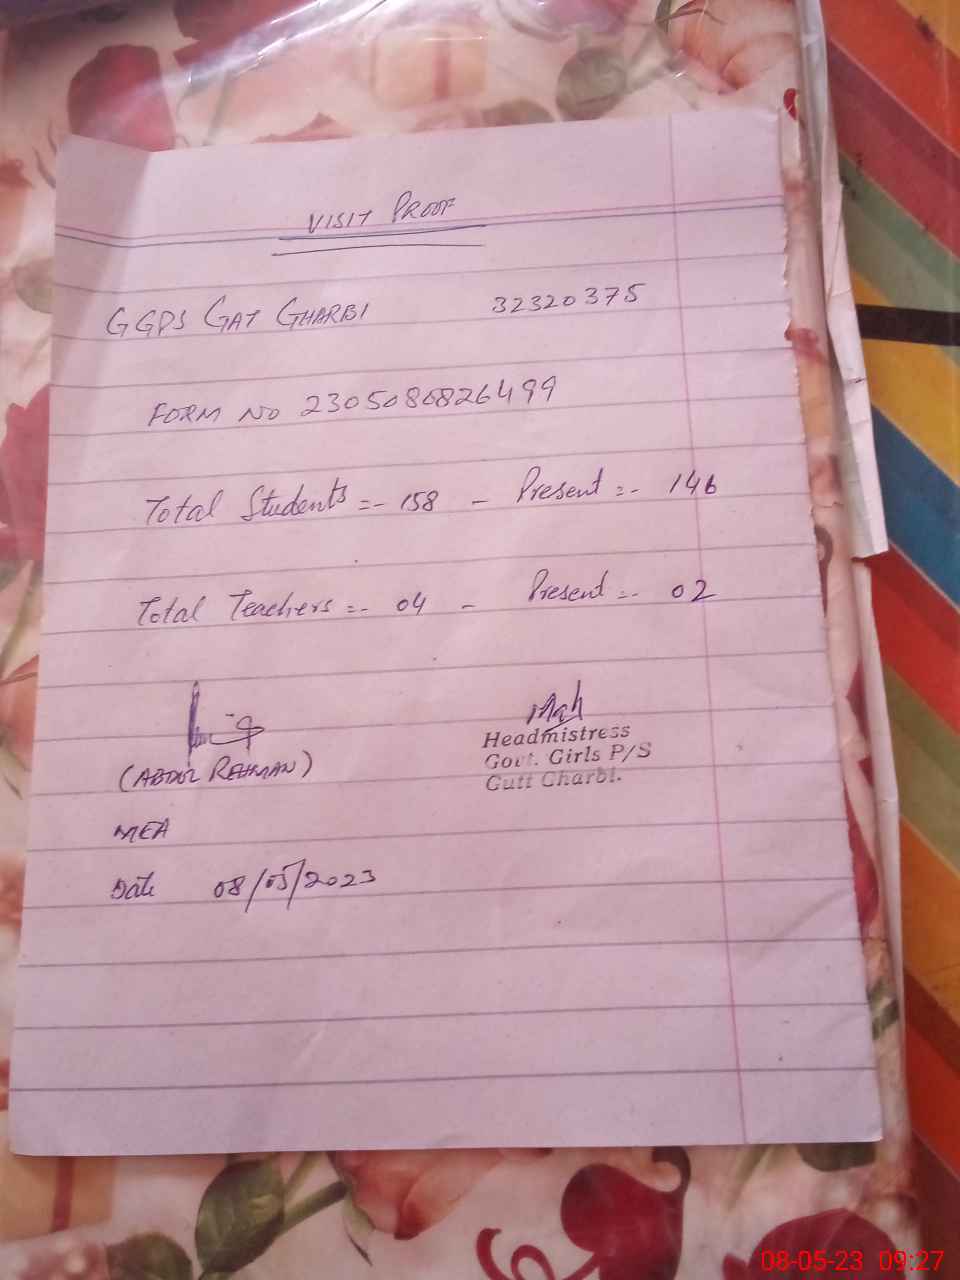 VISIT PROOF
GGPS GAT GHARBI 32320375
FORM NO 2305080826499
Total Students =- 158 - Present =- 146
Total Teachers =- 04 - Present =- 02
(ABDUL REHMAN)
Headmistress
Govt. Girls P/S
Gutt Gharbi.
MEA
Date 08/05/2023
08-05-23 09:27